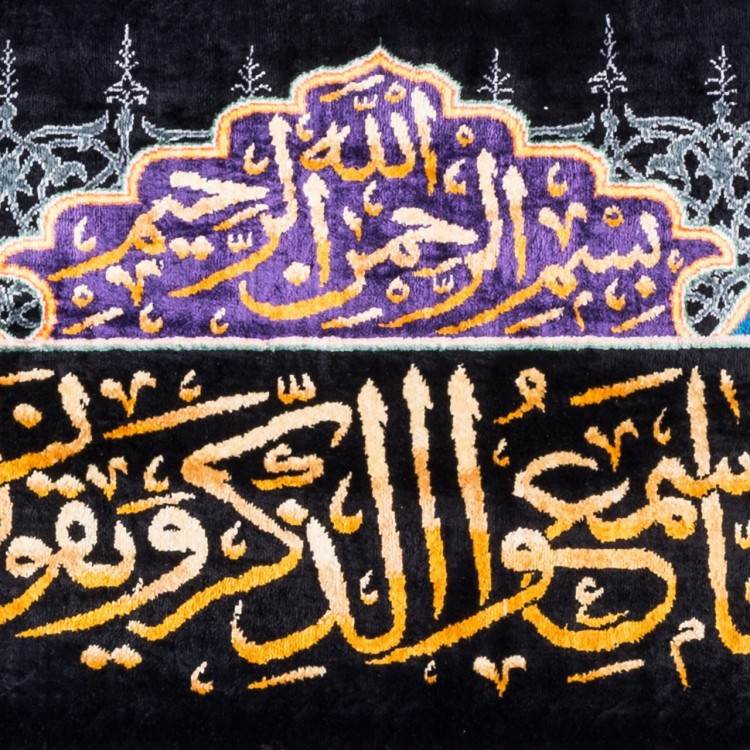 بسم الله الرحمن الرحيم
سمعوا الذكر ويقولون